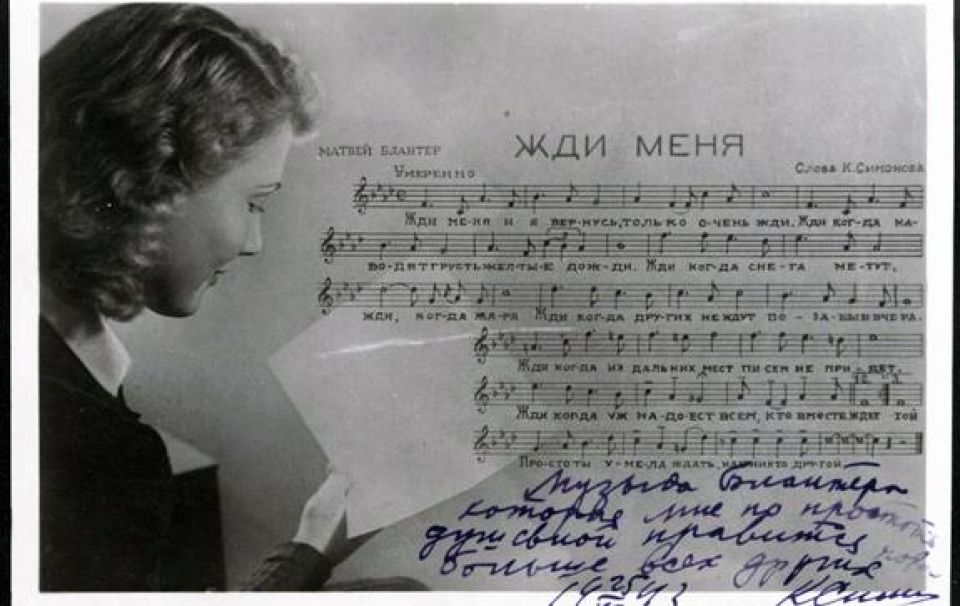 МАТВЕЙ БЛАНТЕР
ЖДИ МЕНЯ
Слова К. Симонова
Умеренно
Жди ме-ня и я вер-нусь, толь-ко о-чень жди. Жди ког-да на-
во-дят грусть жел-ты-е дож-ди. Жди ког-да сне-га ме-тут,
жди, ког-да жа-ра Жди ког-да дру-гих не ждут по-за-быв вче-ра.
Жди ког-да из даль-них мест пи-сем не при-дет,
Жди ког-да уж на-до-ест всем, кто вместе ждет той
Про-сто ты у-ме-ла ждать, как никто дру-гой
Музыка Блантера
которая мне по
душевной нравится
больше всех других
К Симон